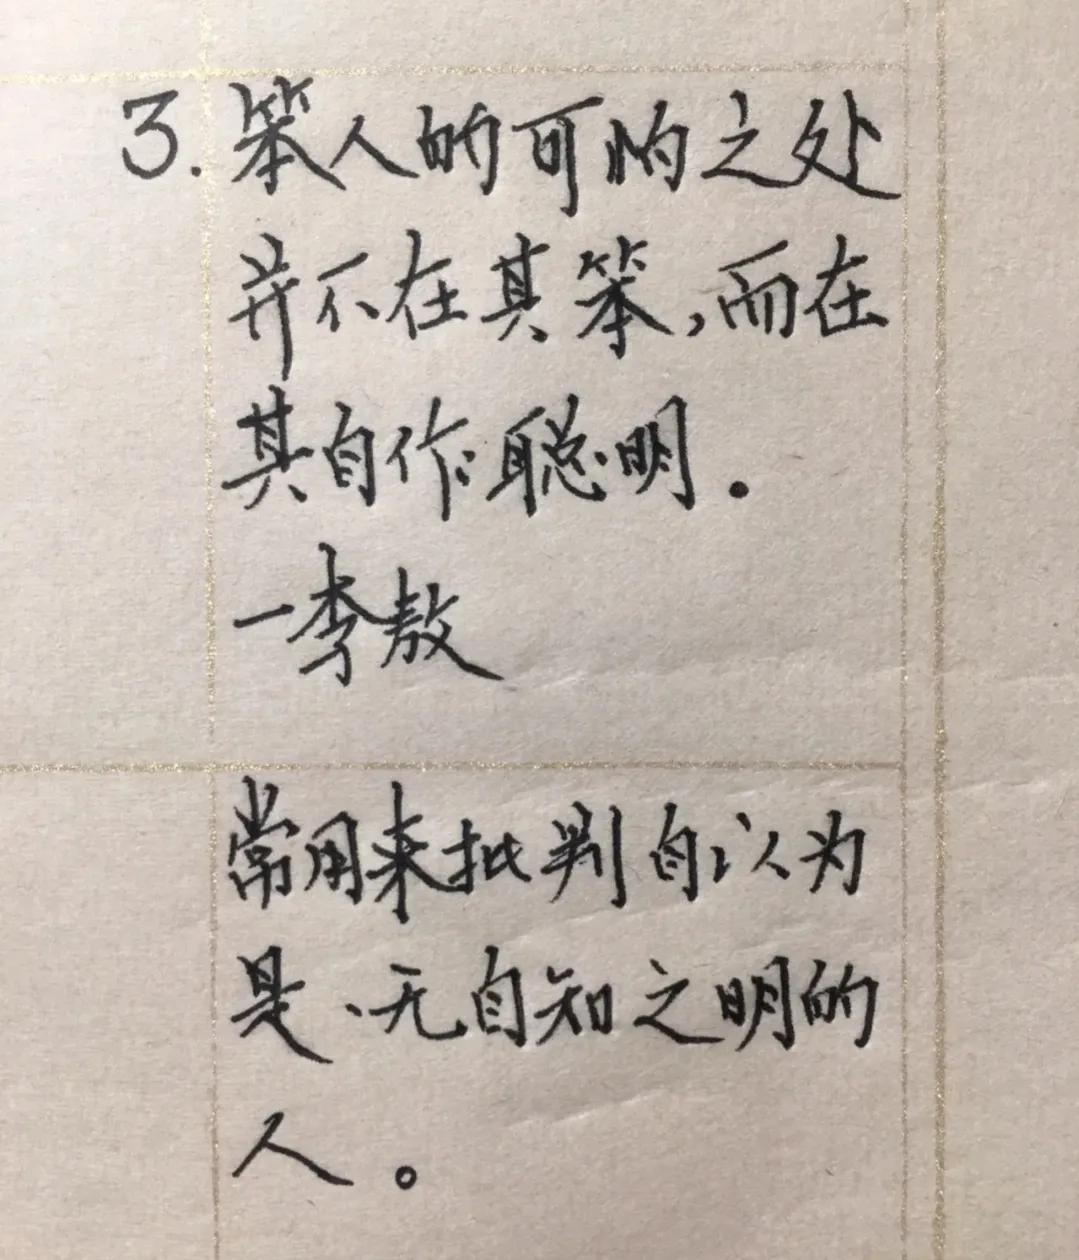 3.笨人的可怕之处
并不在其笨,而在
其自作聪明.
一李敖
常用来批判自以为
是、无自知之明的
人。